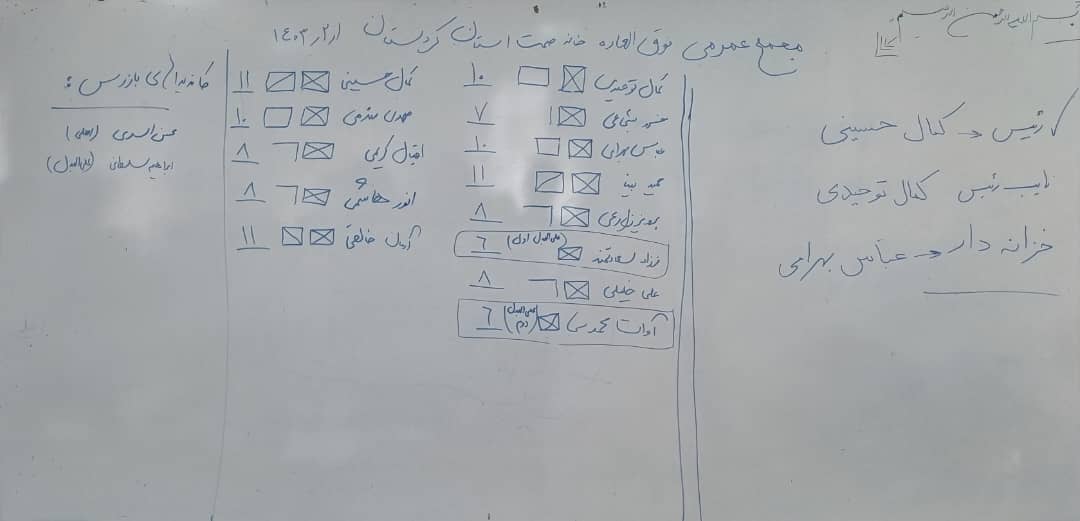 بسم الله الرحمن الرحیم
مجمع عمومی فوق العاده خانه صمت استان کردستان ۱۴۰۳/۲/۱
رئیس ← کمال حسینی
نایب رئیس کمال توحیدی
خزانه دار ← عباس بهرامی
کمال توحیدی ۱۰
شجاعی ۷
عباس بهرامی ۱۰
حمید ۱۱
پرویز زارعی ۸
فرزاد سعادتمند (علی البدل اول) ۶
علی خلیلی ۸
آوات محمدی (علی البدل دوم) ۶
کمال حسینی ۱۱
مهدی ۱۰
اقبال کریمی ۸
انور هاشمی ۸
آرمان خالقی ۱۱
کاندیداهای بازرس :
محسن اسدی (اصلی)
ابراهیم سلطانی (علی البدل)